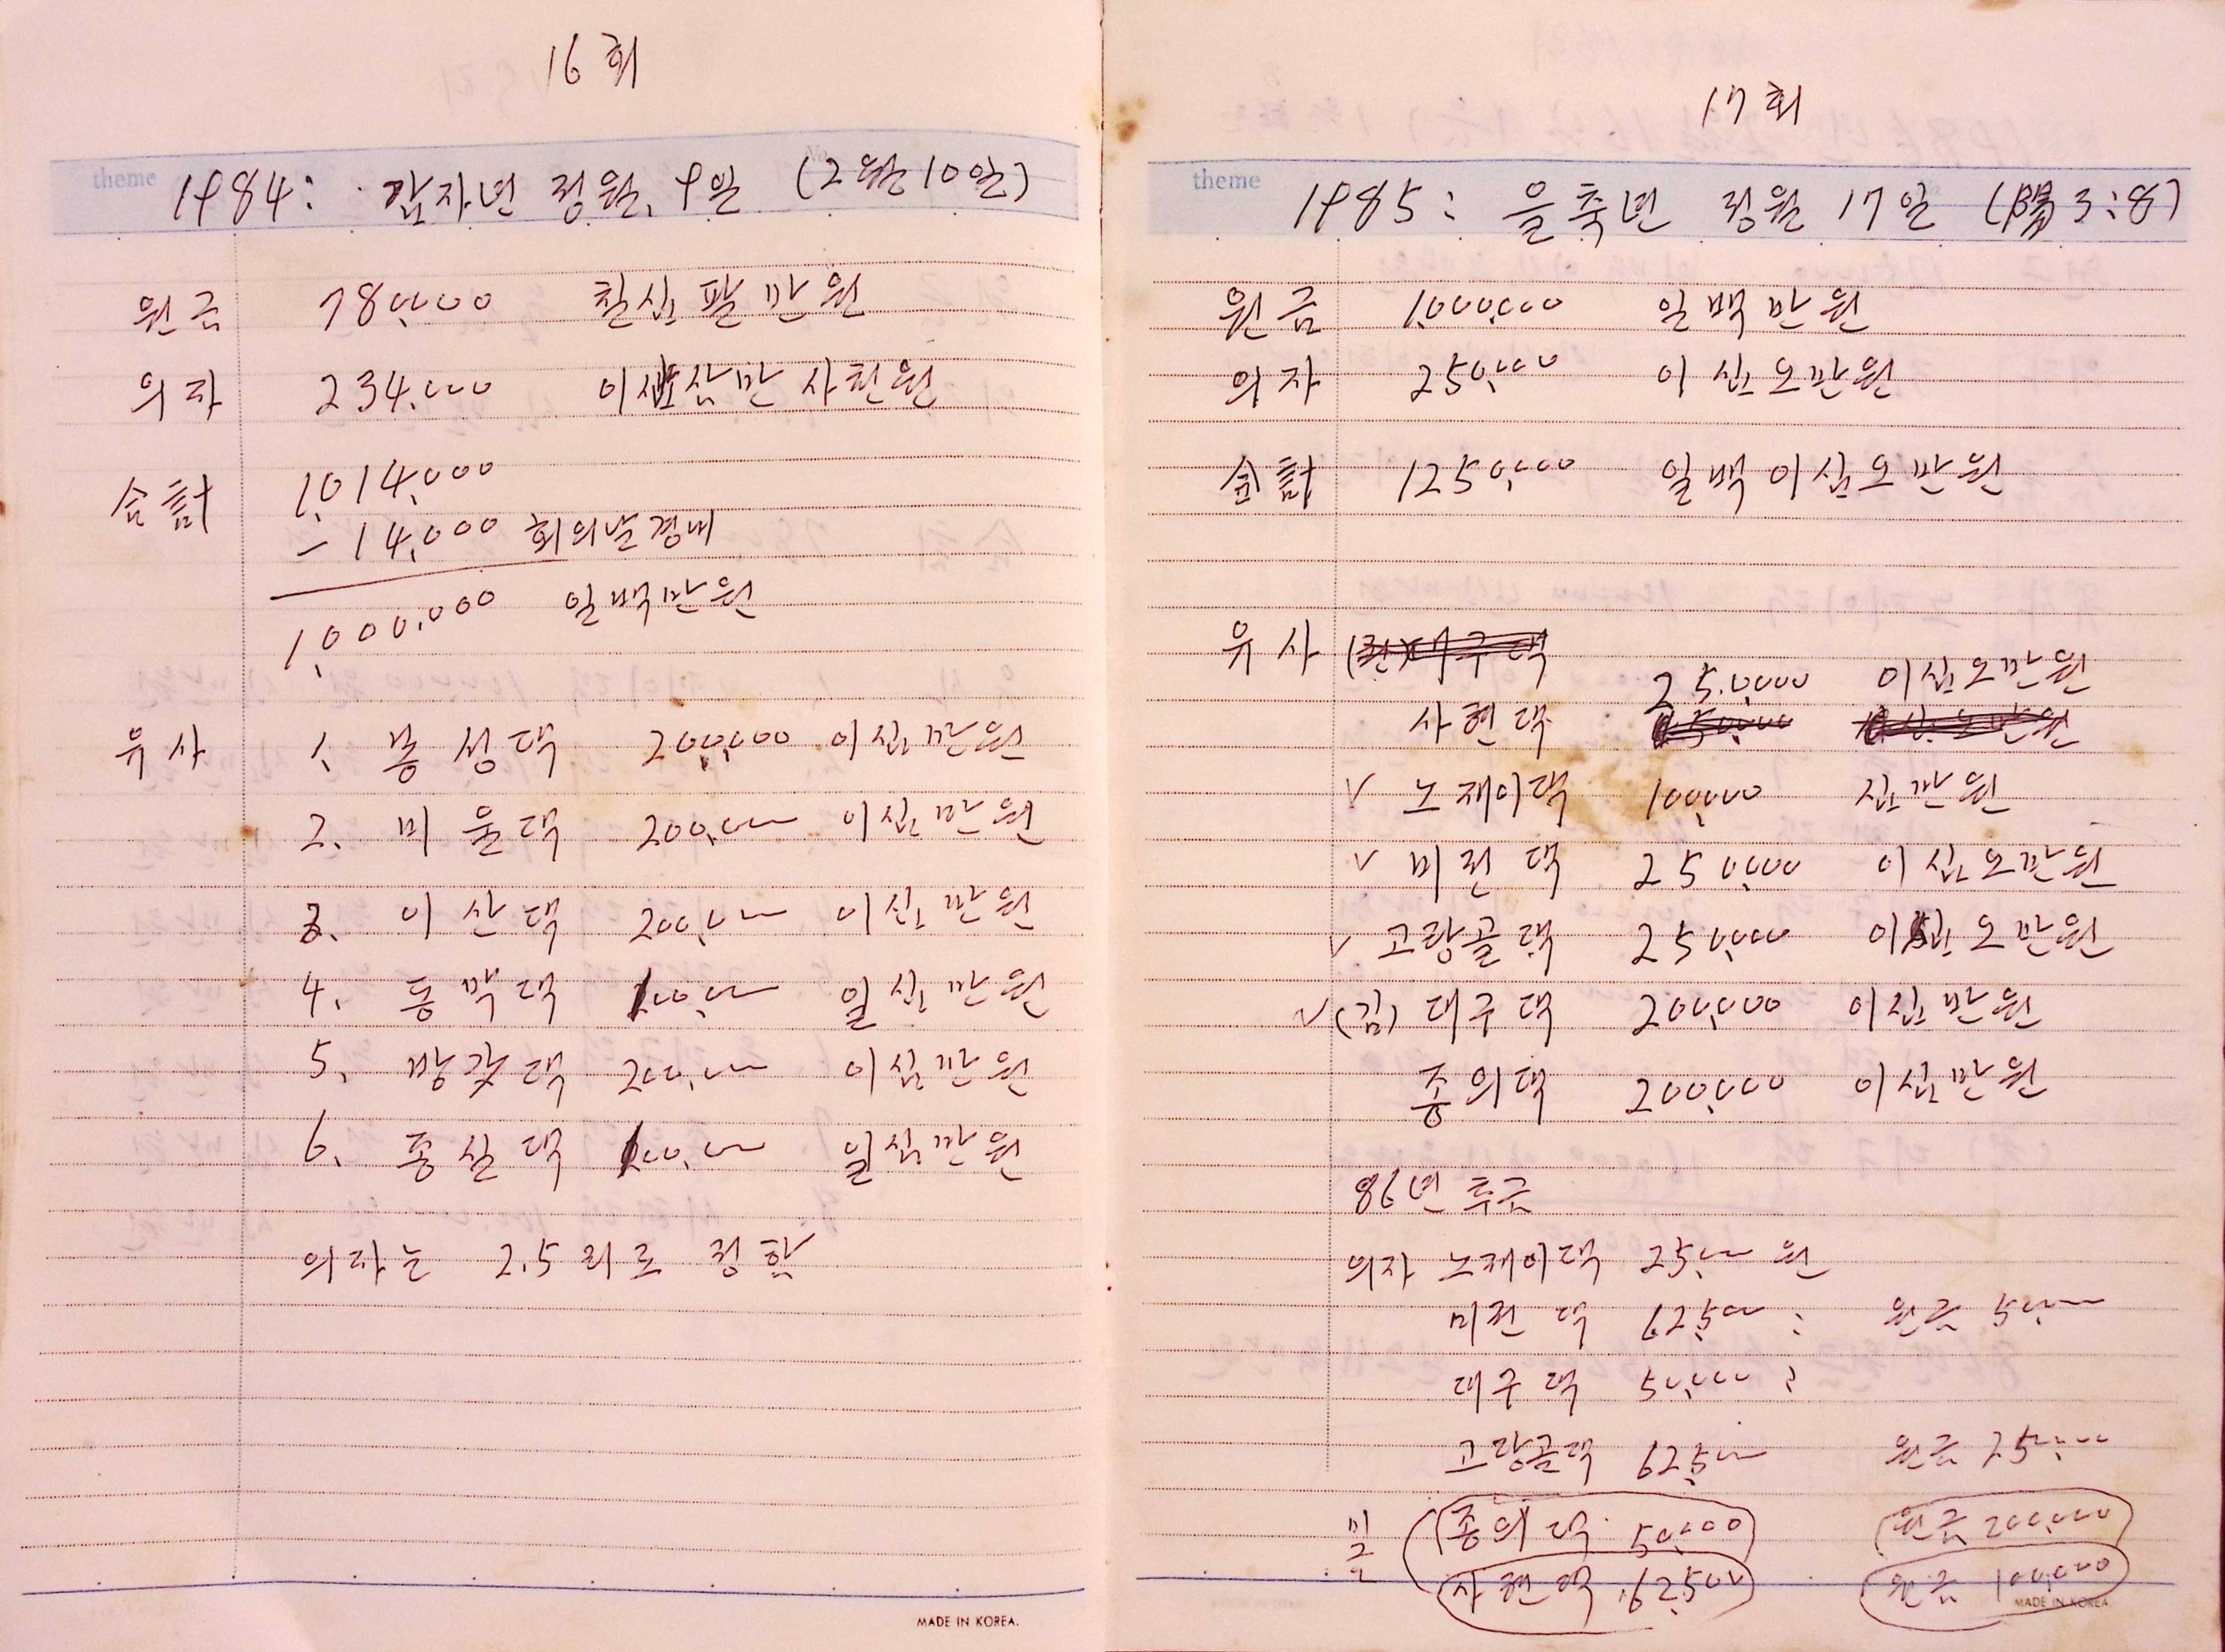 16 회
theme No.
1984: 갑자년 정월 9일 (2월 10일)
원금 780,000 칠십팔만원
의자 234,000 이십삼만 사천원
合計 1,014,000
- 14,000 회의날경비
1,000,000 일백만원
유사 1. 동성댁 200,000 이십만원
2. 미울댁 200,000 이십만원
3. 이산댁 200,000 이십만원
4. 동백댁 100,000 일십만원
5. 방갓댁 200,000 이십만원
6. 종실댁 100,000 일십만원
의자는 2.5리로 정함
MADE IN KOREA.
17 회
theme
1985: 을축년 정월 17일 (陽 3:8)
원금 1,000,000 일백만원
의자 250,000 이십오만원
合計 1250,000 일백이십오만원
유사
250,000 이십오만원
사현댁
✓ 노재이댁 100,000 십만원
✓ 미전댁 250,000 이십오만원
✓ 고랑골댁 250,000 이십오만원
✓ (김) 대구댁 200,000 이십만원
종의댁 200,000 이십만원
86년 수금
의자 노재이댁 25,000 원
미전댁 62,500 : 원금 50,000
대구댁 50,000 :
고랑골댁 62,500 원금 25,000
미수 종의댁 50,000 원금 200,000
사현댁 62,500 원금 100,000
MADE IN KOREA.